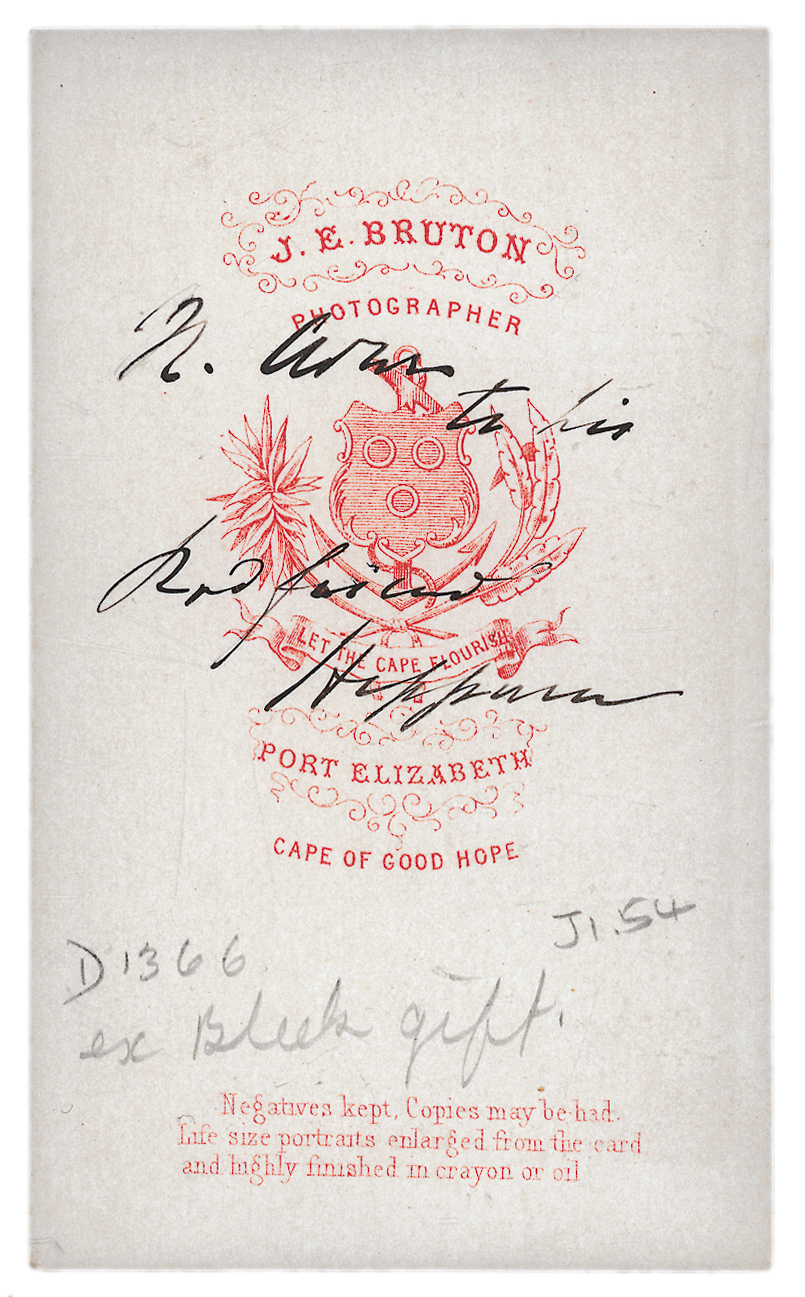 J. E. BRUTON
PHOTOGRAPHER
N.
to his
friend
LET THE CAPE FLOURISH
PORT ELIZABETH
CAPE OF GOOD HOPE
J1.54
D1366
ex Bleek gift.
Negatives kept, Copies may be had.
Life size portraits enlarged from the card
and highly finished in crayon or oil